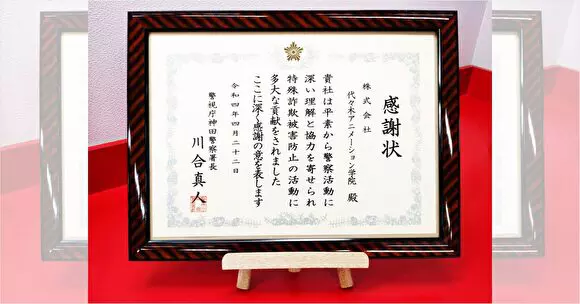 感謝状
株式会社
代々木アニメーション学院 殿
貴社は平素から警察活動に
深い理解と協力を寄せられ
特殊詐欺被害防止の活動に
多大な貢献をされました
ここに深く感謝の意を表します
令和四年四月二十二日
警視庁神田警察署長
川合真人